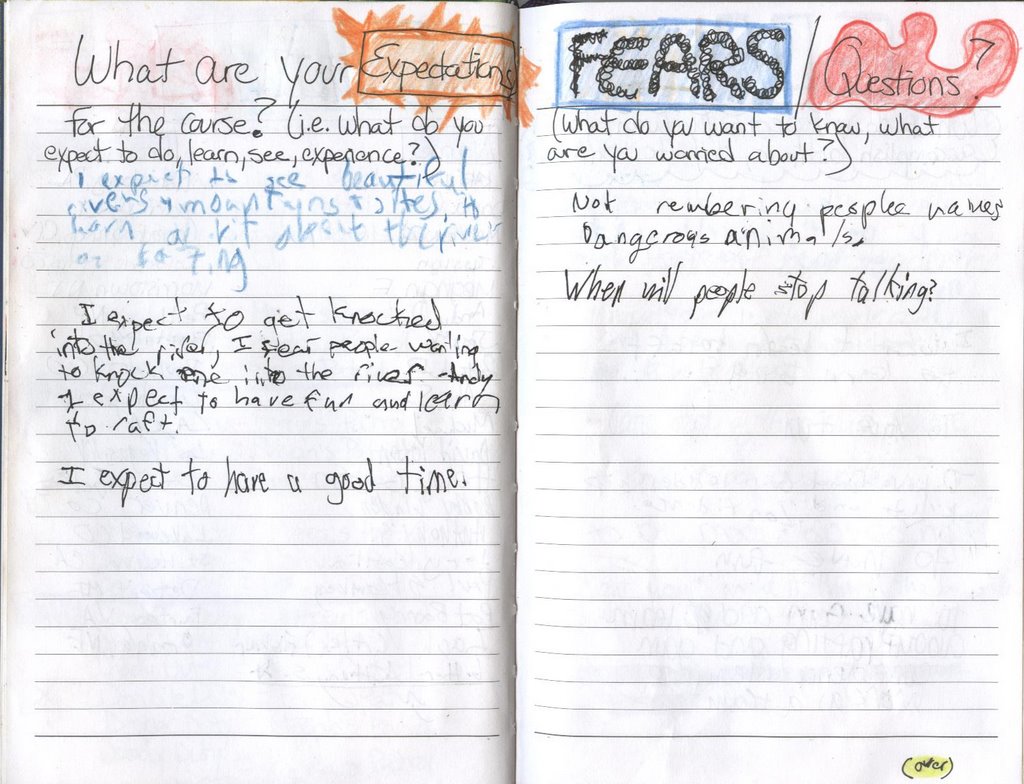 What are your Expectations
For the course? (i.e. what do you
expect to do, learn, see, experience?)
I expect to see beautiful
rivers, mountyns + sites, to
learn a bit about the river
or rafting
I expect to get knocked
into the river, I fear people wanting
to knock me into the river -Andy
I expect to have fun and learn
to raft.
I expect to have a good time.
FEARS / Questions?
(What do you want to know, what
are you worried about?)
Not rembering people names
Dangerous animals.
When will people stop talking?
(over)